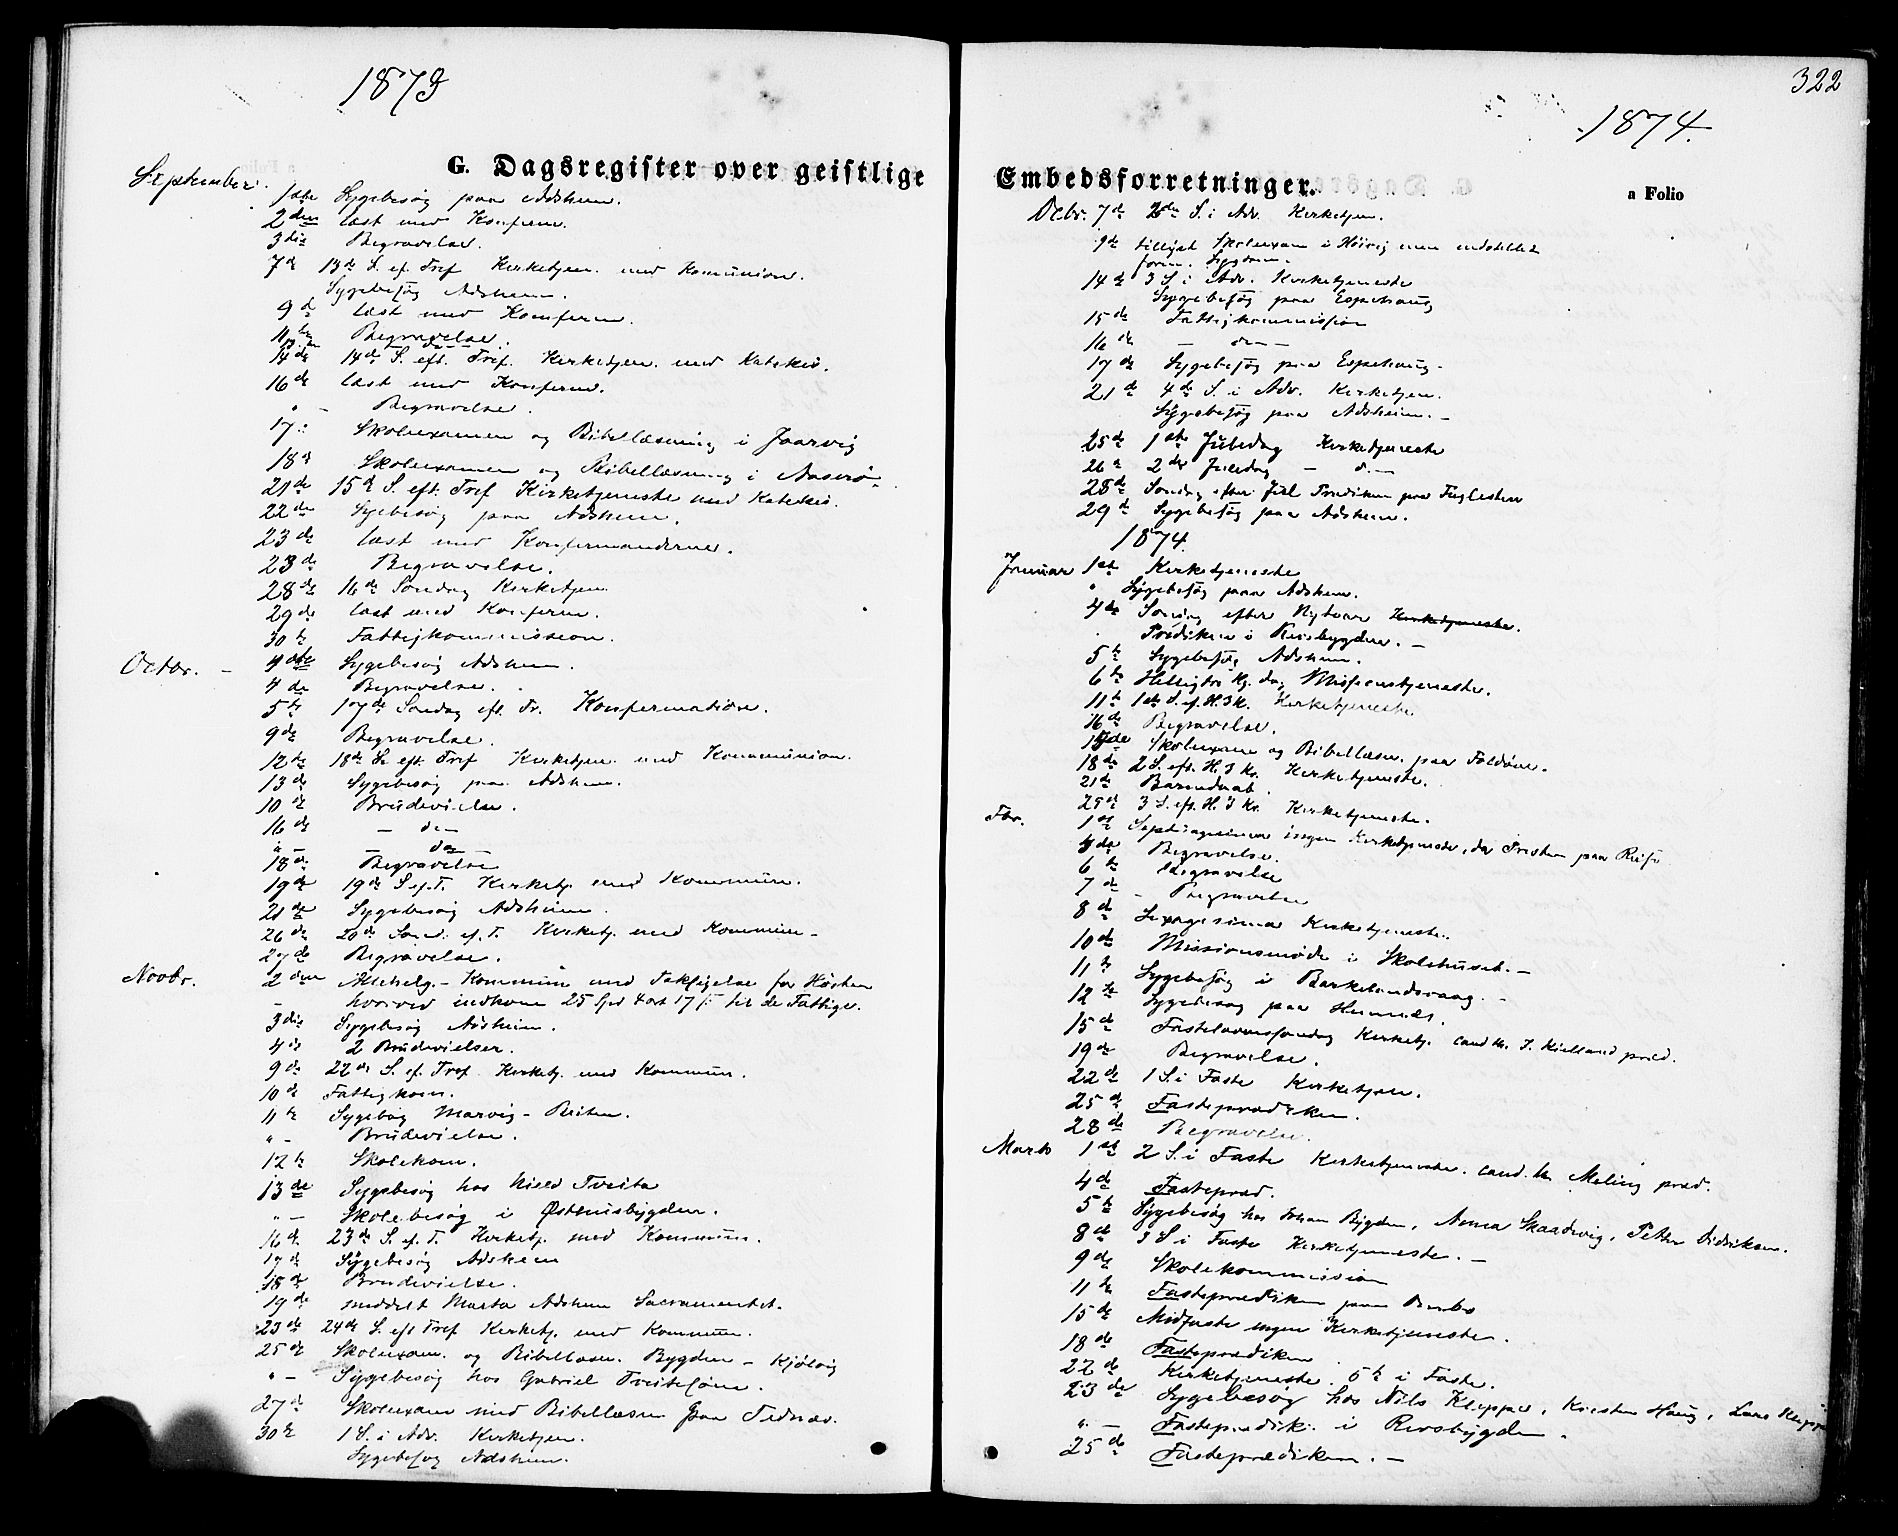 1873
G. Dagsregister over geistlige
September. 1ste Sygebesøg paa Adsheim.
2den læst med Konferm.
3die Begravelse.
7de 13de S. ef. Tref. Kirketjen. med Komunion.
Sygebesøg Adsheim.
9de læst med Konferm.
11te Begravelse.
14de 14de S. eft. Tref. Kirketjen. med Katekis.
16de læst med Konferm.
" - Begravelse.
17: Skolexamen og Bibellæsning i Jaarvig
18de Skolexamen og Bibellæsning i
21de 15de S. eft. Tref Kirketjeneste med Katekis.
22de Sygebesøg paa Adsheim.
23de læst med Konfermanderne.
23de Begravelse.
28de 16de Søndag Kirketjen.
29de læst med Konferm.
30te Fattigkommission.
Octbr. - 4de Sygebesøg Adsheim.
4de Begravelse.
5te 17de Søndag eft. Tr. Konfermation.
9de Begravelse.
12te 18de S. eft. Tref Kirketjen. med Kommunion.
13de Sygebesøg paa Adsheim.
10de Brudevielse.
16de - do -
" - - do -
18de Begravelse
19de 19de S. ef. T. Kirketj. med Kommun.
21de Sygebesøg Adsheim.
26de 20de Sønd. ef. T. Kirketj. med Kommun -
27de Begravelse.
Novbr. 2den Allehelg. - Kommun med Taksigelse for Høsten
- hvorved indkom 25 Spd 4 ort 17 s til de Fattige.
3die Sygebesøg Adsheim.
4de 2 Brudevielser.
9de 22de S. ef. Tref. Kirketj. med Kommun.
10de Fattigkom.
11te Sygebesøg Marvig -
" - Brudevielse.
12te Skolekom.
13de Sygebesøg hos Niels Tveita
" - Skolebesøg i Østhusbygden.
16de 23de S. ef. T. Kirketj. med Kommun.
17de Sygebesøg Adsheim
18de Brudevielse.
19de meddelt Marta Adsheim Sacramentet.
23de 24de S. eft Tref Kirketj. med Kommun.
25de Skolexam. og Bibellæsn. Bygden - Kjölvig
" - Sygebesøg hos Gabriel Tveitesøen.
27de Skolexam med Bibellæsn paa
30te 1 S. i Adv. Kirketjen.
Sygebesøg Adsheim.
322
1874.
Embedsforretninger.
a Folio
Decbr. 7de 2den S. i Adv. Kirketjen.
9de tillyst Skolexam i Høivig men indstillet
form. Sygdom.
14de 3 S. i Adv. Kirketjeneste
Sygebesøg paa Espehaug
15de Fattigkommission
16de - do -
17de Sygebesøg paa Espehaug -
21de 4de S. i Adv. Kirketjen.
Sygebesøg paa Adsheim. -
25de 1ste Juledag Kirketjeneste
26de 2den Juledag - do -
28de Søndag efter Jul Prædiken paa Fuglesteen
29de Sygebesøg paa Adsheim.
1874.
Januar 1ste Kirketjeneste
" Sygebesøg paa Adsheim.
4de Søndag efter Nytaar Kirketjeneste.
Prædiken i Revsbygden. -
5te Sygebesøg Adsheim.
6te Hellig tre Kg. dag Missionstjeneste.
11te 1ste S. ef. H. 3 K. Kirketjeneste.
16de Begravelse.
17de Skolexam og Bibellæsn. paa Foldøen.
18de 2 S. eft. H. 3 K. Kirketjeneste.
21de Barnedaab.
25de 3 S. eft. H. 3 K. Kirketjeneste.
Febr. 1ste Septuagesima ingen Kirketjeneste, da Presten paa Reise
4de Begravelse.
6te Begravelse
7de - Begravelse
8de Sexagesima Kirketjeneste.
10de Missionsmøde i Skolehuset. -
11te Sygebesøg i Barkelandsvaag. -
12te Sygebesøg paa
15de Fastelavnssøndag Kirketj. Cand th. J. Kielland præd.
19de Begravelse.
22de 1 S. i Faste Kirketjen.
25de Fasteprædiken.
28de Begravelse.
Marts 1ste 2 S. i Faste Kirketjeneste. Cand. th. Meling præd.
4de Fastepræd.
5te Sygebesøg hos Johan Bygden, Anna Skaadvig, Petter Didriksen.
8de 3 S i Faste Kirketjeneste. -
9de Skolekommission
11te Fasteprædiken paa
15de Midfaste ingen Kirketjeneste.
18de Fasteprædiken
22de Kirketjeneste. 5te i Faste.
23de Sygebesøg hos Nils Kleppe, Kirsten Haug, Lars Kleppe
" - Fasteprædik. i Revsbygden.
25de Fasteprædiken. -